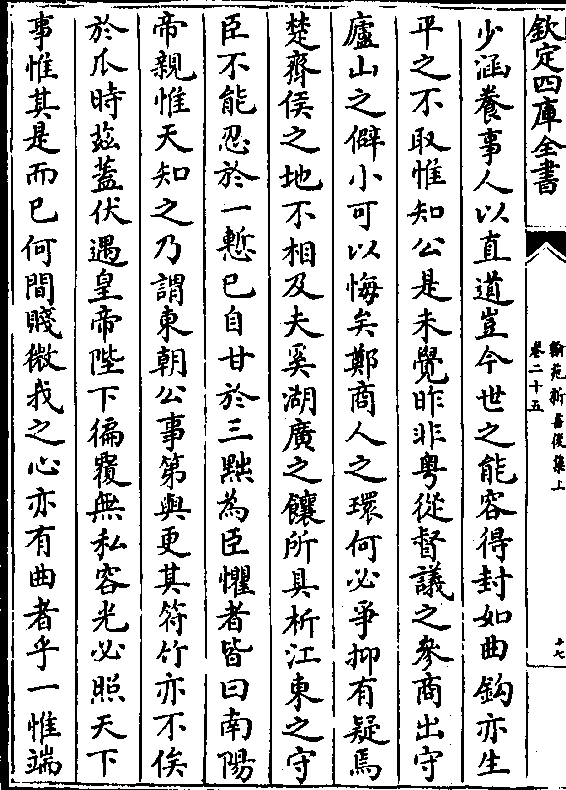 欽定四庫全書
翰苑新書後集上
卷二十五
十七
少涵養事人以直道豈今世之能容得封如曲鈎亦生
平之不取惟知公是未覺昨非粤從督議之參商出守
廬山之僻小可以悔矣鄭商人之環何必爭抑有疑焉
楚齊侯之地不相及夫奚湖廣之饟所具析江東之守
臣不能忍於一慙已自甘於三黜為臣懼者皆曰南陽
帝親惟天知之乃謂東朝公事第與更其符竹亦不俟
於瓜時玆蓋伏遇皇帝陛下徧覆無私容光必照天下
事惟其是而已何間賤微我之心亦有曲者乎一惟端